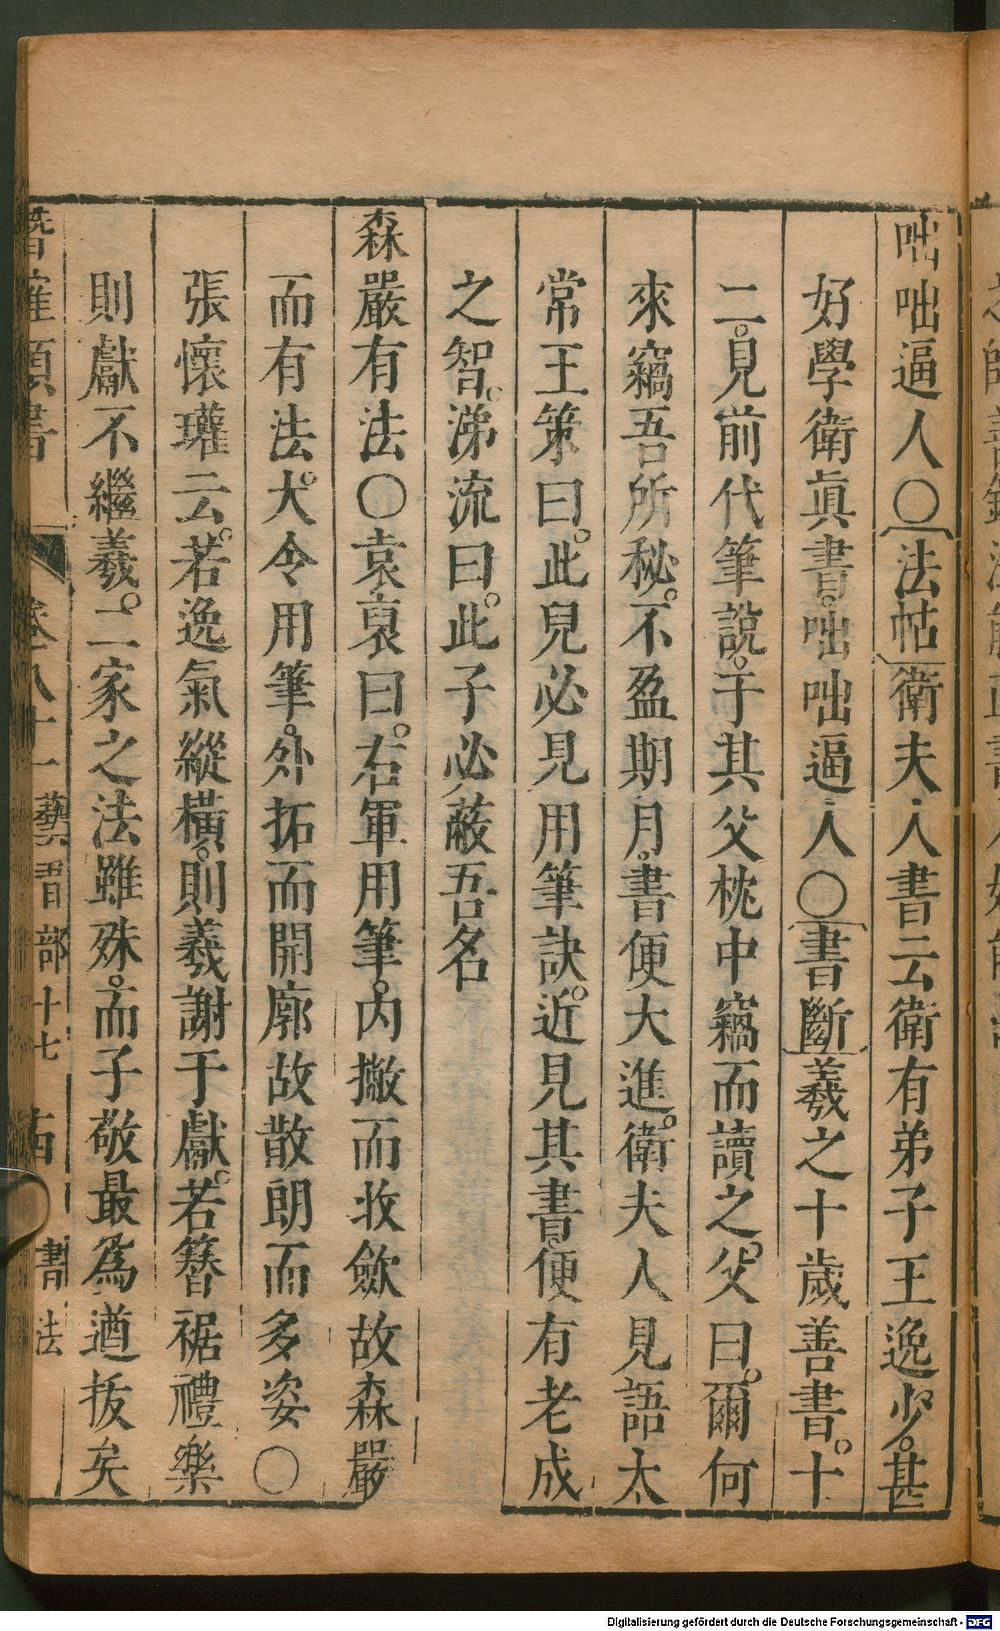 咄咄逼人○法帖衛夫人書云衛有弟子王逸少。甚
好學衛眞書。咄咄逼人○書斷羲之十歲善書。十
二。見前代筆說。于其父枕中竊而讀之。父曰。爾何
來竊吾所秘。不盈期月。書便大進。衛夫人見語太
常王策曰。此兒必見用筆訣。近見其書。便有老成
之智。涕流曰。此子必蔽吾名
森嚴有法○袁裒曰。右軍用筆。内擫而收斂故森嚴
而有法。大令用筆。外拓而開廓故散朗而多姿○
張懷瓘云。若逸氣縱橫。則羲謝于獻。若簪裾禮樂
則獻不繼羲。二家之法雖殊。而子敬最爲遒拔矣
潛確類書 卷八十一 藝習部十七 書法
Digitalisierung gefördert durch die Deutsche Forschungsgemeinschaft - DFG